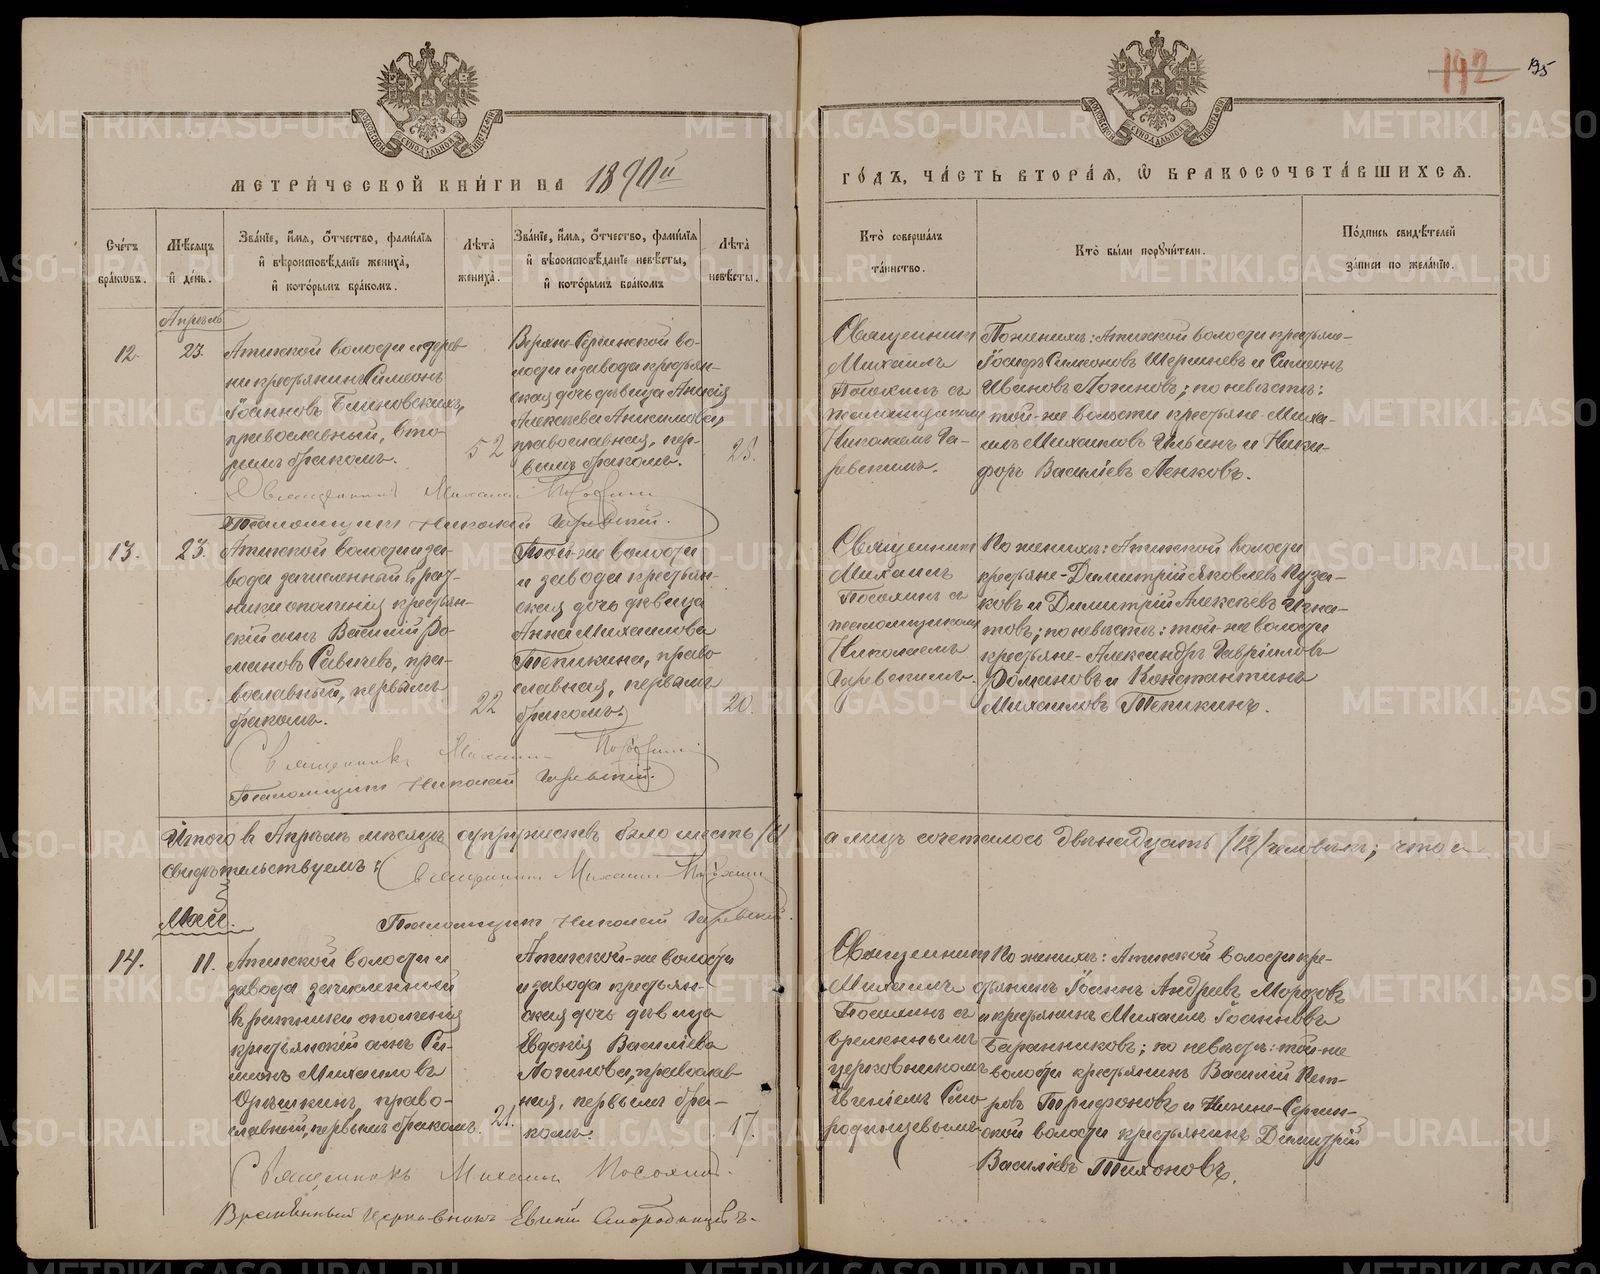 192
195
МЕТРИ́ЧЕСКОЙ КНИ́ГИ НА 1890й
ГО́ДЪ, ЧА́СТЬ ВТОРА́Я, Ѡ БРАКОСОЧЕТА́ВШИХСЯ.
Сче́тъ бра́ковъ.
Мѣ́сяцъ и҆ де́нь.
Зва́нїе, и҆́мя, ѻ҆́тчество, фами́лїя и҆ вѣроисповѣ́данїе жениха̀, и҆ кото́рымъ бра́комъ.
Лѣта̀ жениха̀.
Зва́нїе, и҆́мя, ѻ҆́тчество, фами́лїя и҆ вѣроисповѣ́данїе невѣ́сты, и҆ кото́рымъ бра́комъ
Лѣта̀ невѣ́сты.
Кто̀ соверша́лъ та́инство.
Кто̀ бы́ли пор&#8203;учи́тели.
По́дпись свидѣ́телей за́писи по жела́нїю.
Апрѣль
12
23.
Атигской волости и дерев-
ни крестьянинъ Симеонъ
Іоанновъ Блиновскихъ,
православный, вто-
рымъ бракомъ.
52
Верхне-Сергинской во-
лости и завода крестьян-
ская дочь дѣвица Анисія
Алексѣева Анисимова,
православная, пер-
вымъ бракомъ.
23.
Священникъ
Михаилъ
Посохинъ съ
псаломщикомъ
Николаемъ
По женихѣ: Атигской волости крестьяне-
Іосифъ Симеоновъ Шершневъ и Симеонъ
Ивановъ Логиновъ; по невѣстѣ:
той-же волости крестьяне Миха-
илъ Михаиловъ Ильинъ и Ники-
форъ Василіевъ Пенковъ.
Священникъ Михаилъ Посохинъ
Псаломщикъ Николай
13.
23.
Атигской волости и за-
вода зачисленный въ рат-
ники ополченія крестьян-
скій сынъ Василій Ро-
мановъ Савичевъ, пра-
вославный, первымъ
бракомъ.
22
Той-же волости
и завода крестьян-
ская дочь дѣвица
Анна Михаилова
Тепикина, право-
славная, первымъ
бракомъ.
20.
Священникъ
Михаилъ
Посохинъ съ
псаломщикомъ
Николаемъ
По женихѣ: Атигской волости
крестьяне-Димитрій Яковлевъ Пуза-
ковъ и Димитрій Алексѣевъ Игна-
товъ; по невѣстѣ: той-же волости
крестьяне-Александръ Гавріиловъ
Романовъ и Константинъ
Михаиловъ Тепикинъ.
Священникъ Михаилъ Посохинъ
Псаломщикъ Николай
Итого въ Апрѣлѣ мѣсяцѣ супружествъ было шесть /6/
а лицъ сочеталось двѣнадцать /12/ человѣкъ; что и
свидѣтельствуемъ: Священникъ Михаилъ Посохинъ
Май.
Псаломщикъ Николай
14.
11.
Атигской волости и
завода зачисленный
въ ратники ополченія
крестьянскій сынъ Си-
меонъ Михаиловъ
Орѣшкинъ, право-
славный, первымъ бракомъ.
21.
Атигской-же волости
и завода крестьян-
ская дочь дѣвица
Евдокія Василіева
Логинова, православ-
ная, первымъ бра-
комъ.
17.
Священникъ
Михаилъ
Посохинъ съ
временнымъ
церковникомъ
Евгеніемъ Смо-
родинцевымъ
По женихѣ: Атигской волости кре-
стьянинъ Іоаннъ Андреевъ Морозовъ
и крестьянинъ Михаилъ Іоанновъ
Баранниковъ; по невѣстѣ: той-же
волости крестьянинъ Василій Пет-
ровъ Трифоновъ и Нижне-Сергин-
ской волости крестьянинъ Димитрій
Василіевъ Тихоновъ.
Священникъ Михаилъ Посохинъ.
Временный церковникъ Евгеній Смородинцевъ.
METRIKI.GASO-URAL.RU